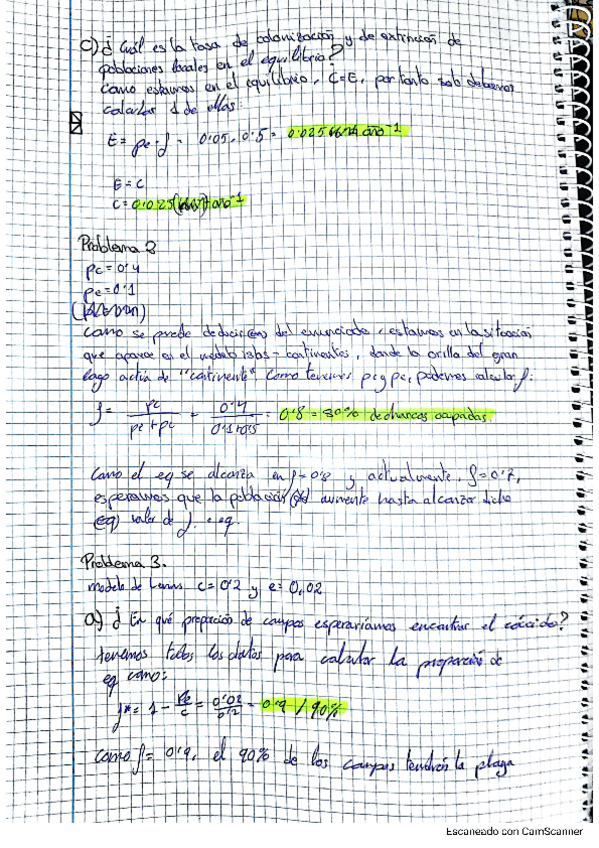 c) ¿Cuál es la tasa de colonización y de extinción de
poblaciones locales en el equilibrio?
Como estamos en el equilibrio, C=E, por tanto solo debemos
calcular 1 de ellas:
E = pe · f = 0'05 · 0'5 = 0'025 año⁻¹
E = C
C = 0'025 año⁻¹
Problema 2
pc = 0'4
pe = 0'1
Como se puede deducir del enunciado, estamos en la situación
que aparece en el modelo islas - continentes, donde la orilla del gran
lago actúa de "continente". Como tenemos pe y pc, podemos calcular f:
f = pc / pe + pc = 0'4 / = 0'8 = 80% de charcas ocupadas
Como el eq se alcanza en f = 0'8 y actualmente f = 0'7,
esperamos que la población aumente hasta alcanzar dicho
valor de f. eq.
Problema 3.
modelo de Levins c = 0'2 y e = 0,02
a) ¿En qué proporción de campos esperaríamos encontrar el cóccido?
tenemos todos los datos para calcular la proporción de
eq como:
f* = 1 - e/c = 0'02/0'2 = 0'9 / 90%
como f = 0'9, el 90% de los campos tendrán la plaga
Escaneado con CamScanner